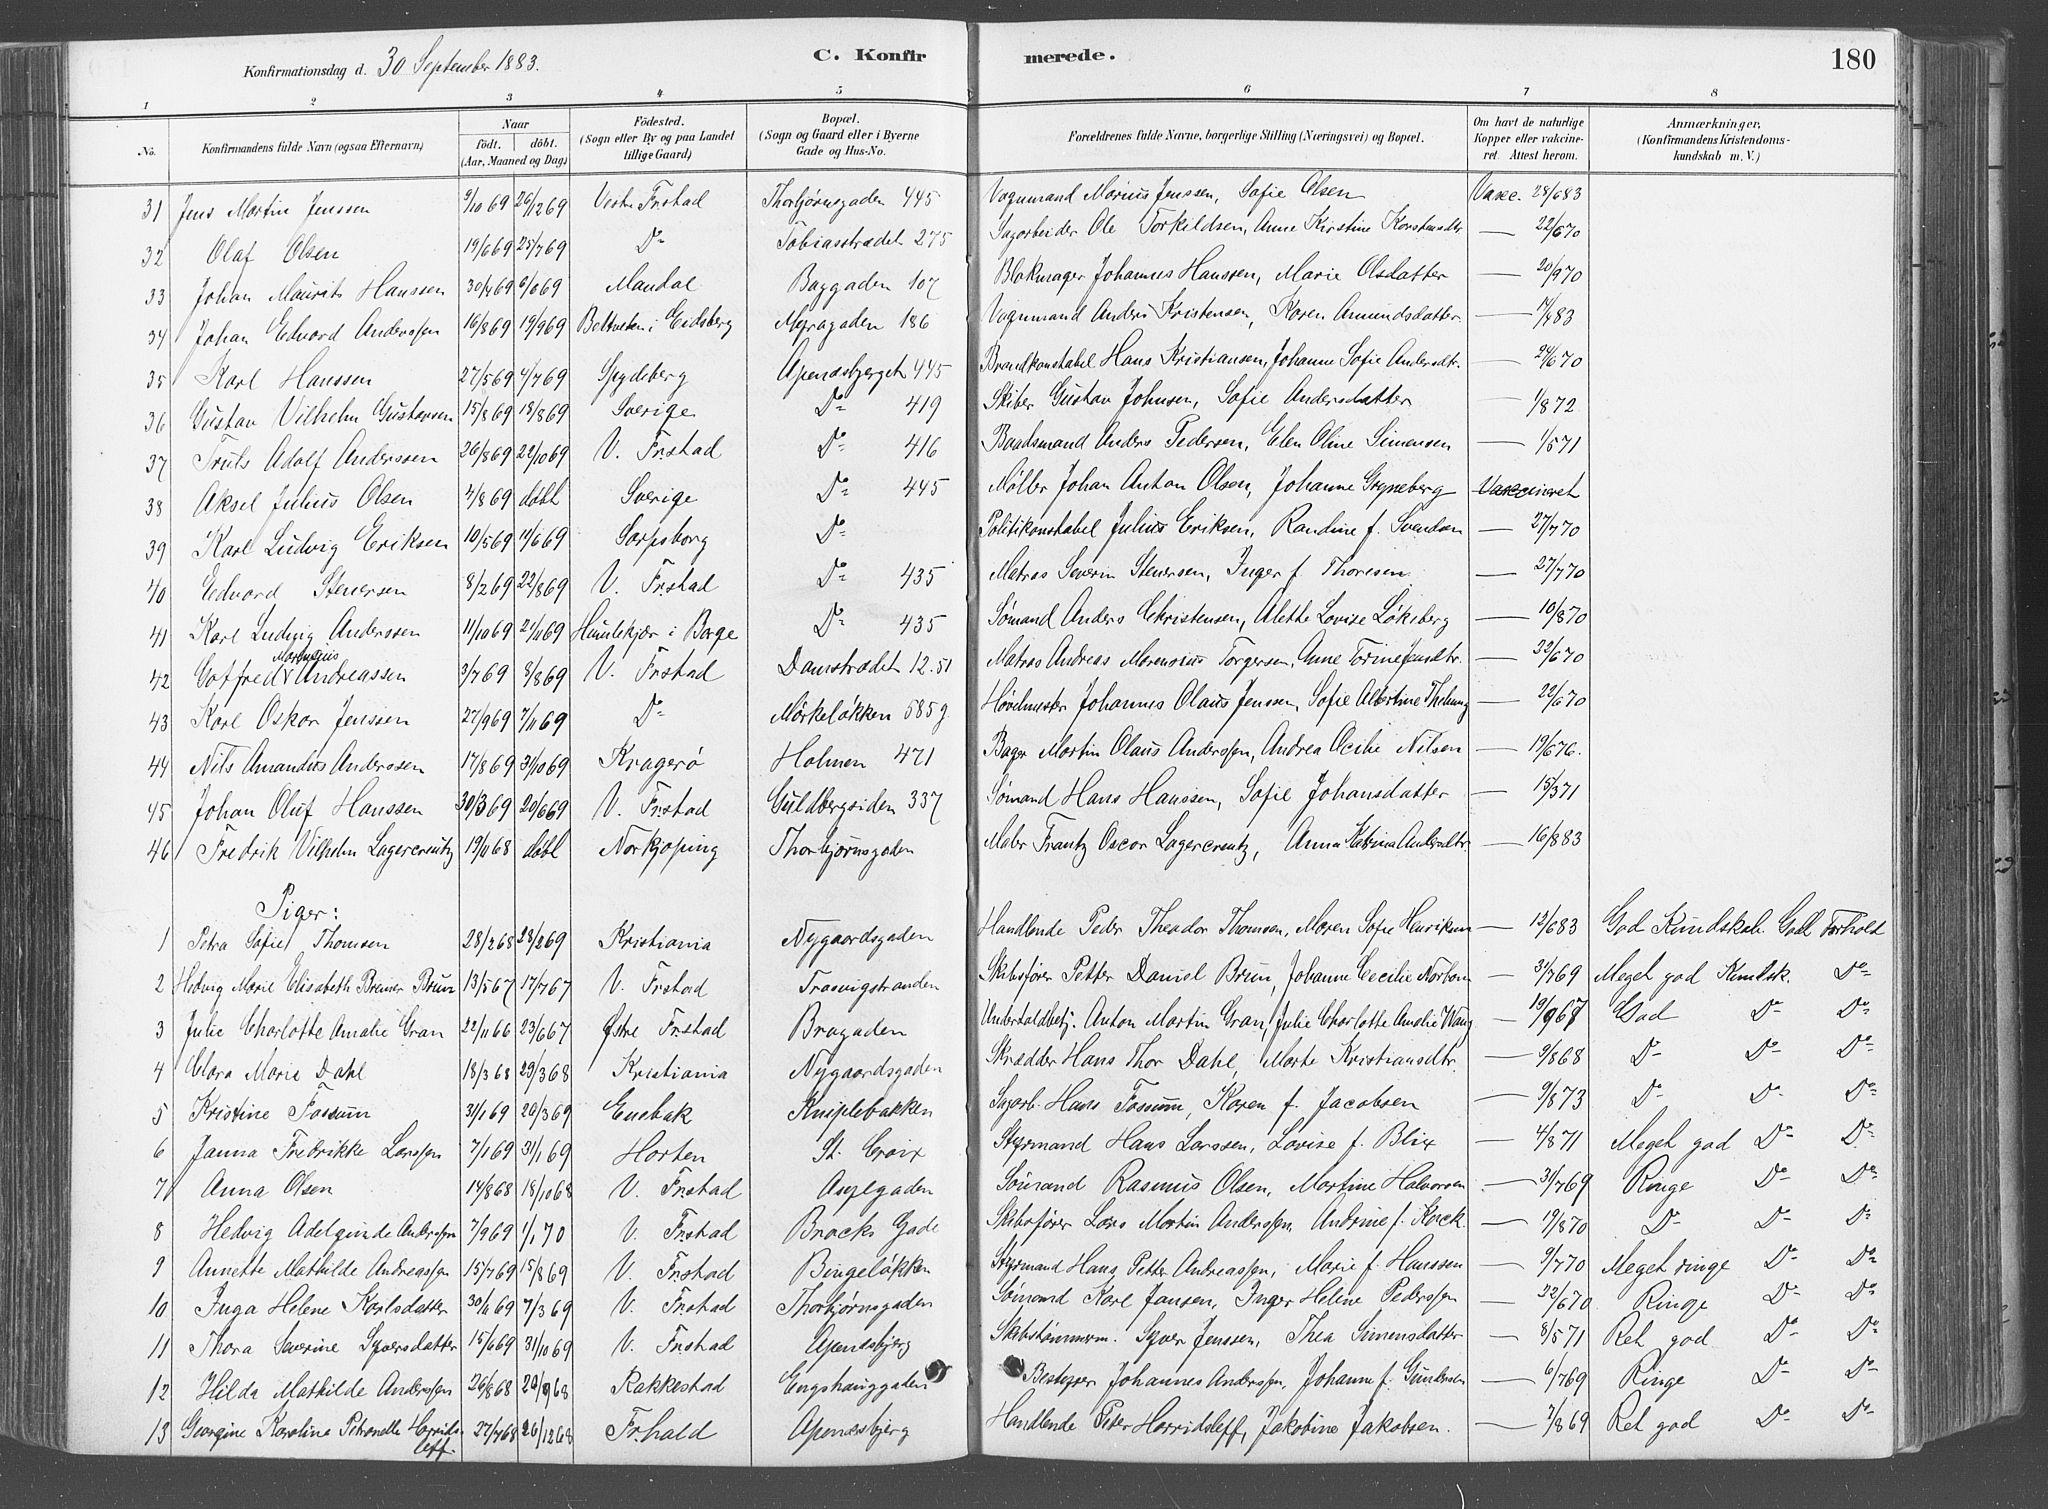 Konfirmationsdag d. 30 September 1883. C. Konfirmerede. 180
1 2 3 4 5 6 7 8
No. Konfirmandens fulde Navn (ogsaa Efternavn) Naar født. døbt. (Aar, Maaned og Dag) Fødested. (Sogn eller By og paa Landet tillige Gaard) Bopæl. (Sogn og Gaard eller i Byerne Gade og Hus-No. Forældrenes fulde Navne, borgerlige Stilling (Næringsvei) og Bopæl. Om havt de naturlige Kopper eller vakcineret. Attest herom. Anmærkninger, (Konfirmandens Kristendomskundskab m. V.)
31 Jens Martin Jenssen 9/10 69 26/12 69 Vestre Frstad Thorbjørnsgaden 445 Vognmand Marius Jenssen, Sofie Olsen Vacc. 28/6 83
32 Olaf Olsen 19/6 69 25/7 69 Do Tobiasstrædet 275 Sagarbeider Ole Torkildsen, Anne Kirstine Korstensdtr — 22/6 70
33 Johan Maurits Hanssen 30/4 69 6/6 69 Mandal Baggaden 107 Blokmager Johannes Hanssen, Marie Olsdatter — 20/9 70
34 Johan Edvard Anderssen 16/8 69 19/9 69 i Eidsberg Meiragaden 186 Vognmand Anders Kristensen, Karen Amundsdatter — 17/4 83
35 Karl Hanssen 27/5 69 4/7 69 Spydeberg Apenæsbjerget 445 Brandkonstabel Hans Kristiansen, Johanne Sofie Andersdtr. — 24/6 70
36 Gustav Vilhelm Gustavsen 15/8 69 18/8 69 Sverige Do 419 Skiber Gustav Johnsen, Sofie Andersdatter — 1/8 72
37 Truls Adolf Anderssen 26/8 69 22/10 69 V. Frstad Do 416 Baadsmand Anders Pedersen, Elen Oline Simensen — 1/5 71
38 Aksel Julius Olsen 4/8 69 døbt Sverige Do 445 Møller Johan Anton Olsen, Johanne Gryneberg Vaccineret
39 Karl Ludvig Eriksen 10/5 69 11/6 69 Sarpsborg Do Politikonstabel Julius Eriksen, Randine f. Svendsen — 27/7 70
40 Edvard Stenersen 8/2 69 22/8 69 V. Frstad Do 435 Matros Severin Stenersen, Inger f. Thoresen — 27/7 70
41 Karl Ludvig Anderssen 11/10 69 21/11 69 Humlekjær i Borge Do 435 Sømand Anders Christensen, Alette Lovise Løkeberg — 10/8 70
42 Gotfred Marensius Andreassen 3/7 69 8/8 69 V. Frstad Damstrædet 12.51 Matros Andreas Marensius Torgersen, Anne Torine Jensdtr. — 22/6 70
43 Karl Oskar Jenssen 27/9 69 7/11 69 Do Mørkeløkken 585 g Høvlmester Johannes Olaus Jenssen, Sofie Albertine — 22/6 70
44 Nils Amandus Anderssen 17/8 69 31/10 69 Kragerø Holmen 471 Bager Martin Olaus Anderssen, Andrea Ocilie Nilsen — 19/6 76.
45 Johan Oluf Hanssen 30/3 69 20/6 69 V. Frstad Guldbergsiden 337 Sømand Hans Hanssen, Sofie Johansdatter — 15/3 71
46 Fredrik Vilhelm Lagercreutz 19/11 68 døbt Norkjøping Thorbjørnsgaden Maler Frantz Oscar Lagercreutz, Anna Katrina Andersdtr — 16/8 83
Piger:
1 Petra Sofie Thomsen 28/2 68 28/2 69 Kristiania Nygaardsgaden Handlende Peder Theodor Thomsen, Maren Sofie Henriksen — 12/6 83 God Kundskab. Godt Forhold
2 Hedvig Marie Elisabeth Bremer Brun 13/5 67 17/7 67 V. Frstad Trosvigstranden Skibsfører Petter Daniel Brun, Johanne Cecilie Norbom — 31/7 69 Meget god Kundsk. Do
3 Julie Charlotte Amalie Gran 22/11 66 23/6 67 Østre Frstad Brogaden Undertoldbetj. Anton Martin Gran, Julie Charlotte Amalie Wang — 19/9 67 God Do Do
4 Clara Marie Dahl 18/3 68 29/3 68 Kristiania Nygaardsgaden Skrædder Hans Thor Dahl, Marte Kristiansdtr. — 9/8 68 Do Do Do
5 Kristine Fossum 31/1 69 20/3 69 Enebak Kniplebakken Sagarb. Hans Fossum, Karen f. Jacobsen — 9/8 73 Do Do Do
6 Janna Fredrikke Larssen 7/1 69 31/1 69 Horten St. Croix Styrmand Hans Larssen, Lovise f. Blix — 4/8 71 Meget god Do Do
7 Anna Olsen 14/8 68 18/10 68 V. Frstad Asylgaden Sømand Rasmus Olsen, Martine Halvorsen — 31/7 69 Ringe Do Do
8 Hedvig Adelgunde Anderssen 7/9 69 1/1 70 V. Frstad Brocks Gade Skibsfører Lars Martin Anderssen, Andrine f. Korck — 19/8 70 Do Do Do
9 Annette Mathilde Andreassen 15/7 69 15/8 69 V. Frstad Bingeløkken Styrmand Hans Petter Andreassen, Marie f. Hanssen — 9/7 70 Meget ringe Do Do
10 Inga Helene Karlsdatter 30/11 69 7/3 69 V. Frstad Thorbjørnsgaden Sømand Karl Jansen, Inger Helene Pederssen — 22/6 70 Ringe Do Do
11 Thora Severine Syversdatter 15/6 69 31/10 69 V. Frstad Apenæsbjerg Skibstømmerm. Syver Jenssen, Thea Simensdatter — 8/5 71 Ret god Do Do
12 Hilda Mathilde Anderssen 26/8 68 20/9 68 Rakkestad Engshauggaden Bestyrer Johannes Anderssen, Johanne f. Gundersen — 6/7 69 Ringe Do Do
13 Georgine Karoline Petronelle Horridsleff. 27/7 68 26/12 68 Fr.hald Apenæsbjerg Handlende Peter Horridsleff, Jakobine Jakobsen. — 7/8 69 Ret god Do Do